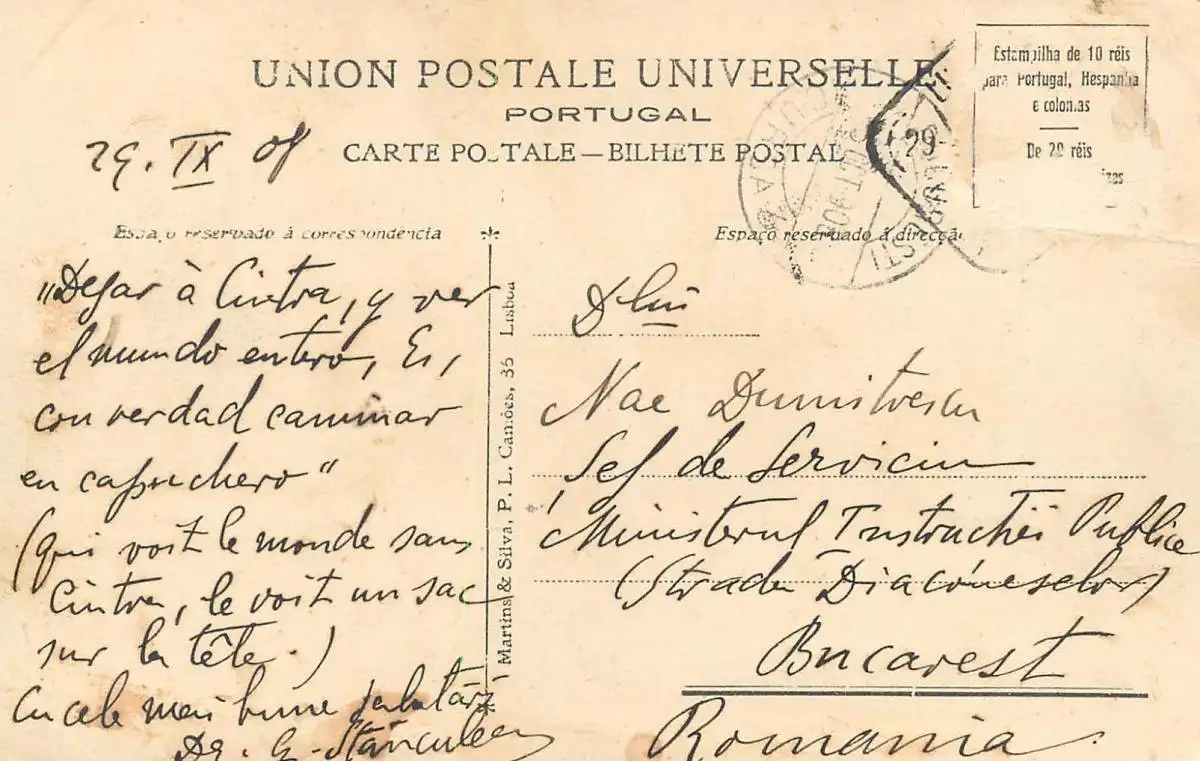 UNION POSTALE UNIVERSELLE
PORTUGAL
CARTE POSTALE — BILHETE POSTAL
Estampilha de 10 réis
para Portugal, Hespanha
e colonias
De 20 réis
29. IX
29
OCT 906
Espaço reservado á correspondencia
Espaço reservado á direcção
„Dejar à Cintra, y ver
el mundo entero, Es,
con verdad caminar
en capuchero"
(qui voit le monde sans
Cintra, le voit un sac
sur la tête.)
Cu cele mai bune salutări
Dr. G. Stănculeanu
Martins & Silva, P. L. Camões, 35 Lisboa
Dlui
Nae Dumitrescu
Șef de Serviciu
Ministerul Instrucției Publice
(Strada Diaconeselor)
Bucarest
Romania.